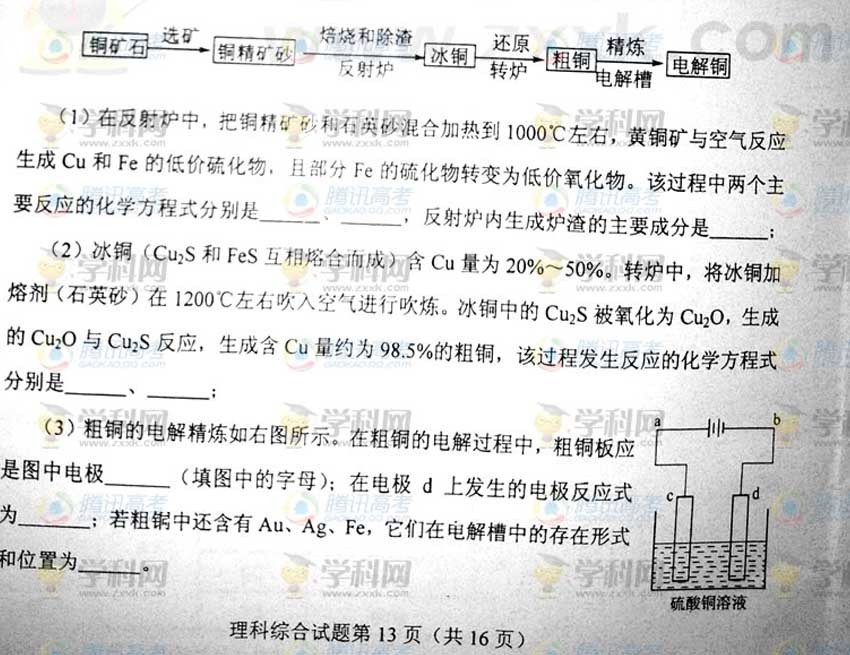 铜矿石 选矿 铜精矿砂 焙烧和除渣 反射炉 冰铜 还原 转炉 粗铜 精炼 电解槽 电解铜
（1）在反射炉中，把铜精矿砂和石英砂混合加热到1000℃左右，黄铜矿与空气反应
生成 Cu 和 Fe 的低价硫化物，且部分 Fe 的硫化物转变为低价氧化物。该过程中两个主
要反应的化学方程式分别是______、______，反射炉内生成炉渣的主要成分是______；
（2）冰铜（Cu₂S 和 FeS 互相熔合而成）含 Cu 量为 20%～50%。转炉中，将冰铜加
熔剂（石英砂）在 1200℃左右吹入空气进行吹炼。冰铜中的 Cu₂S 被氧化为 Cu₂O，生成
的 Cu₂O 与 Cu₂S 反应，生成含 Cu 量约为 98.5%的粗铜，该过程发生反应的化学方程式
分别是______、______；
（3）粗铜的电解精炼如右图所示。在粗铜的电解过程中，粗铜板应
是图中电极______（填图中的字母）；在电极 d 上发生的电极反应式
为______；若粗铜中还含有 Au、Ag、Fe，它们在电解槽中的存在形式
和位置为______。
a b
c d
硫酸铜溶液
理科综合试题第 13 页（共 16 页）
学科网
www.zxxk.com
腾讯高考
GAOKAO.QQ.COM